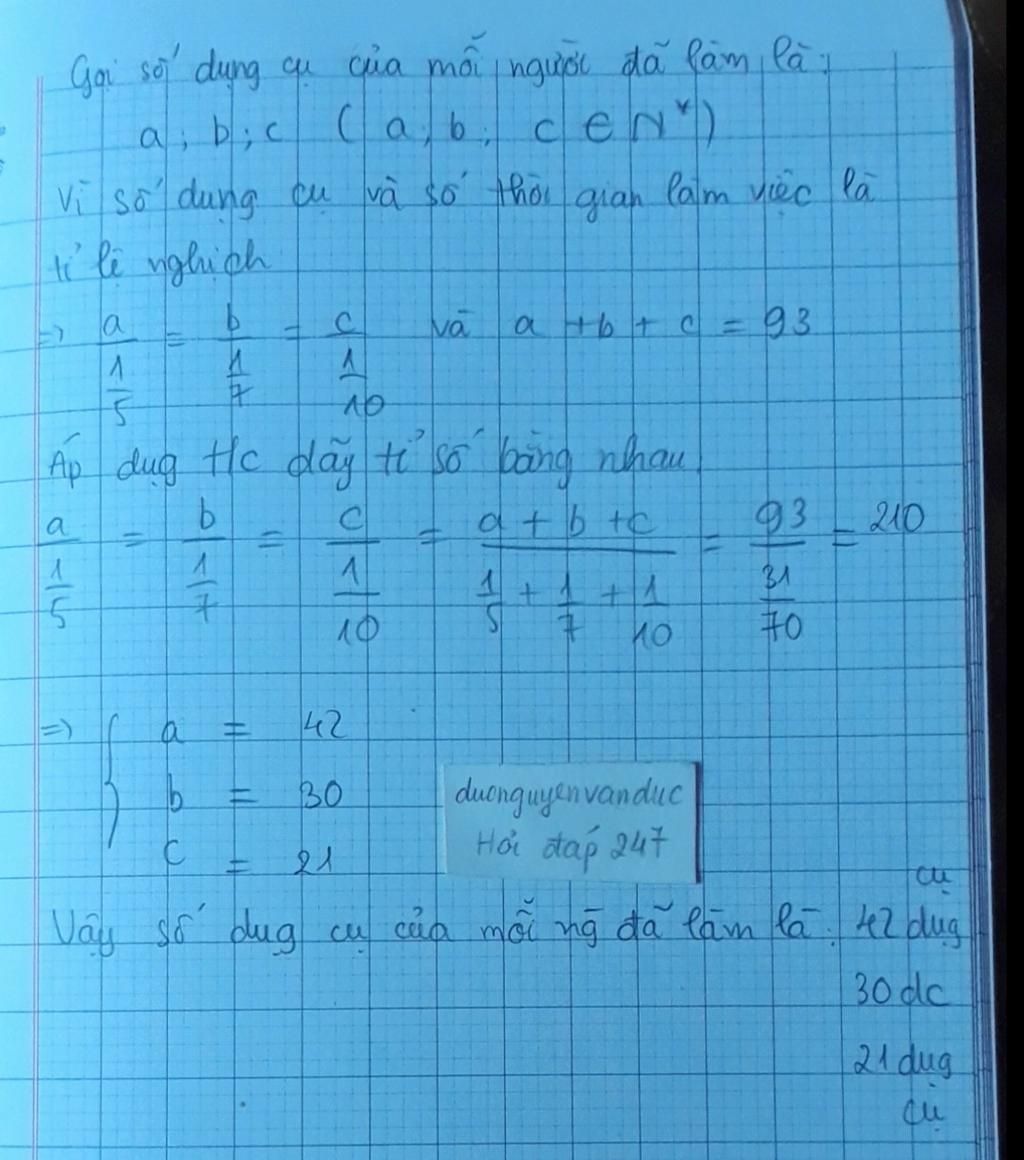 Gọi số dụng cụ của mỗi người đã làm là:
a; b; c ( a, b; c ∈ N* )
Vì số dụng cụ và số thời gian làm việc là
tỉ lệ nghịch
=> a/(1/5) = b/(1/7) = c/(1/10) và a + b + c = 93
Áp dug t/c dãy tỉ số bằng nhau
a/(1/5) = b/(1/7) = c/(1/10) = (a + b + c)/(1/5 + 1/7 + 1/10) = 93/(31/70) = 210
=> { a = 42
b = 30
c = 21
duonguyenvanduc
Hỏi đáp 247
Vậy số dug cụ của mỗi ng đã làm là: 42 dug cụ
30 dc
21 dug
cụ